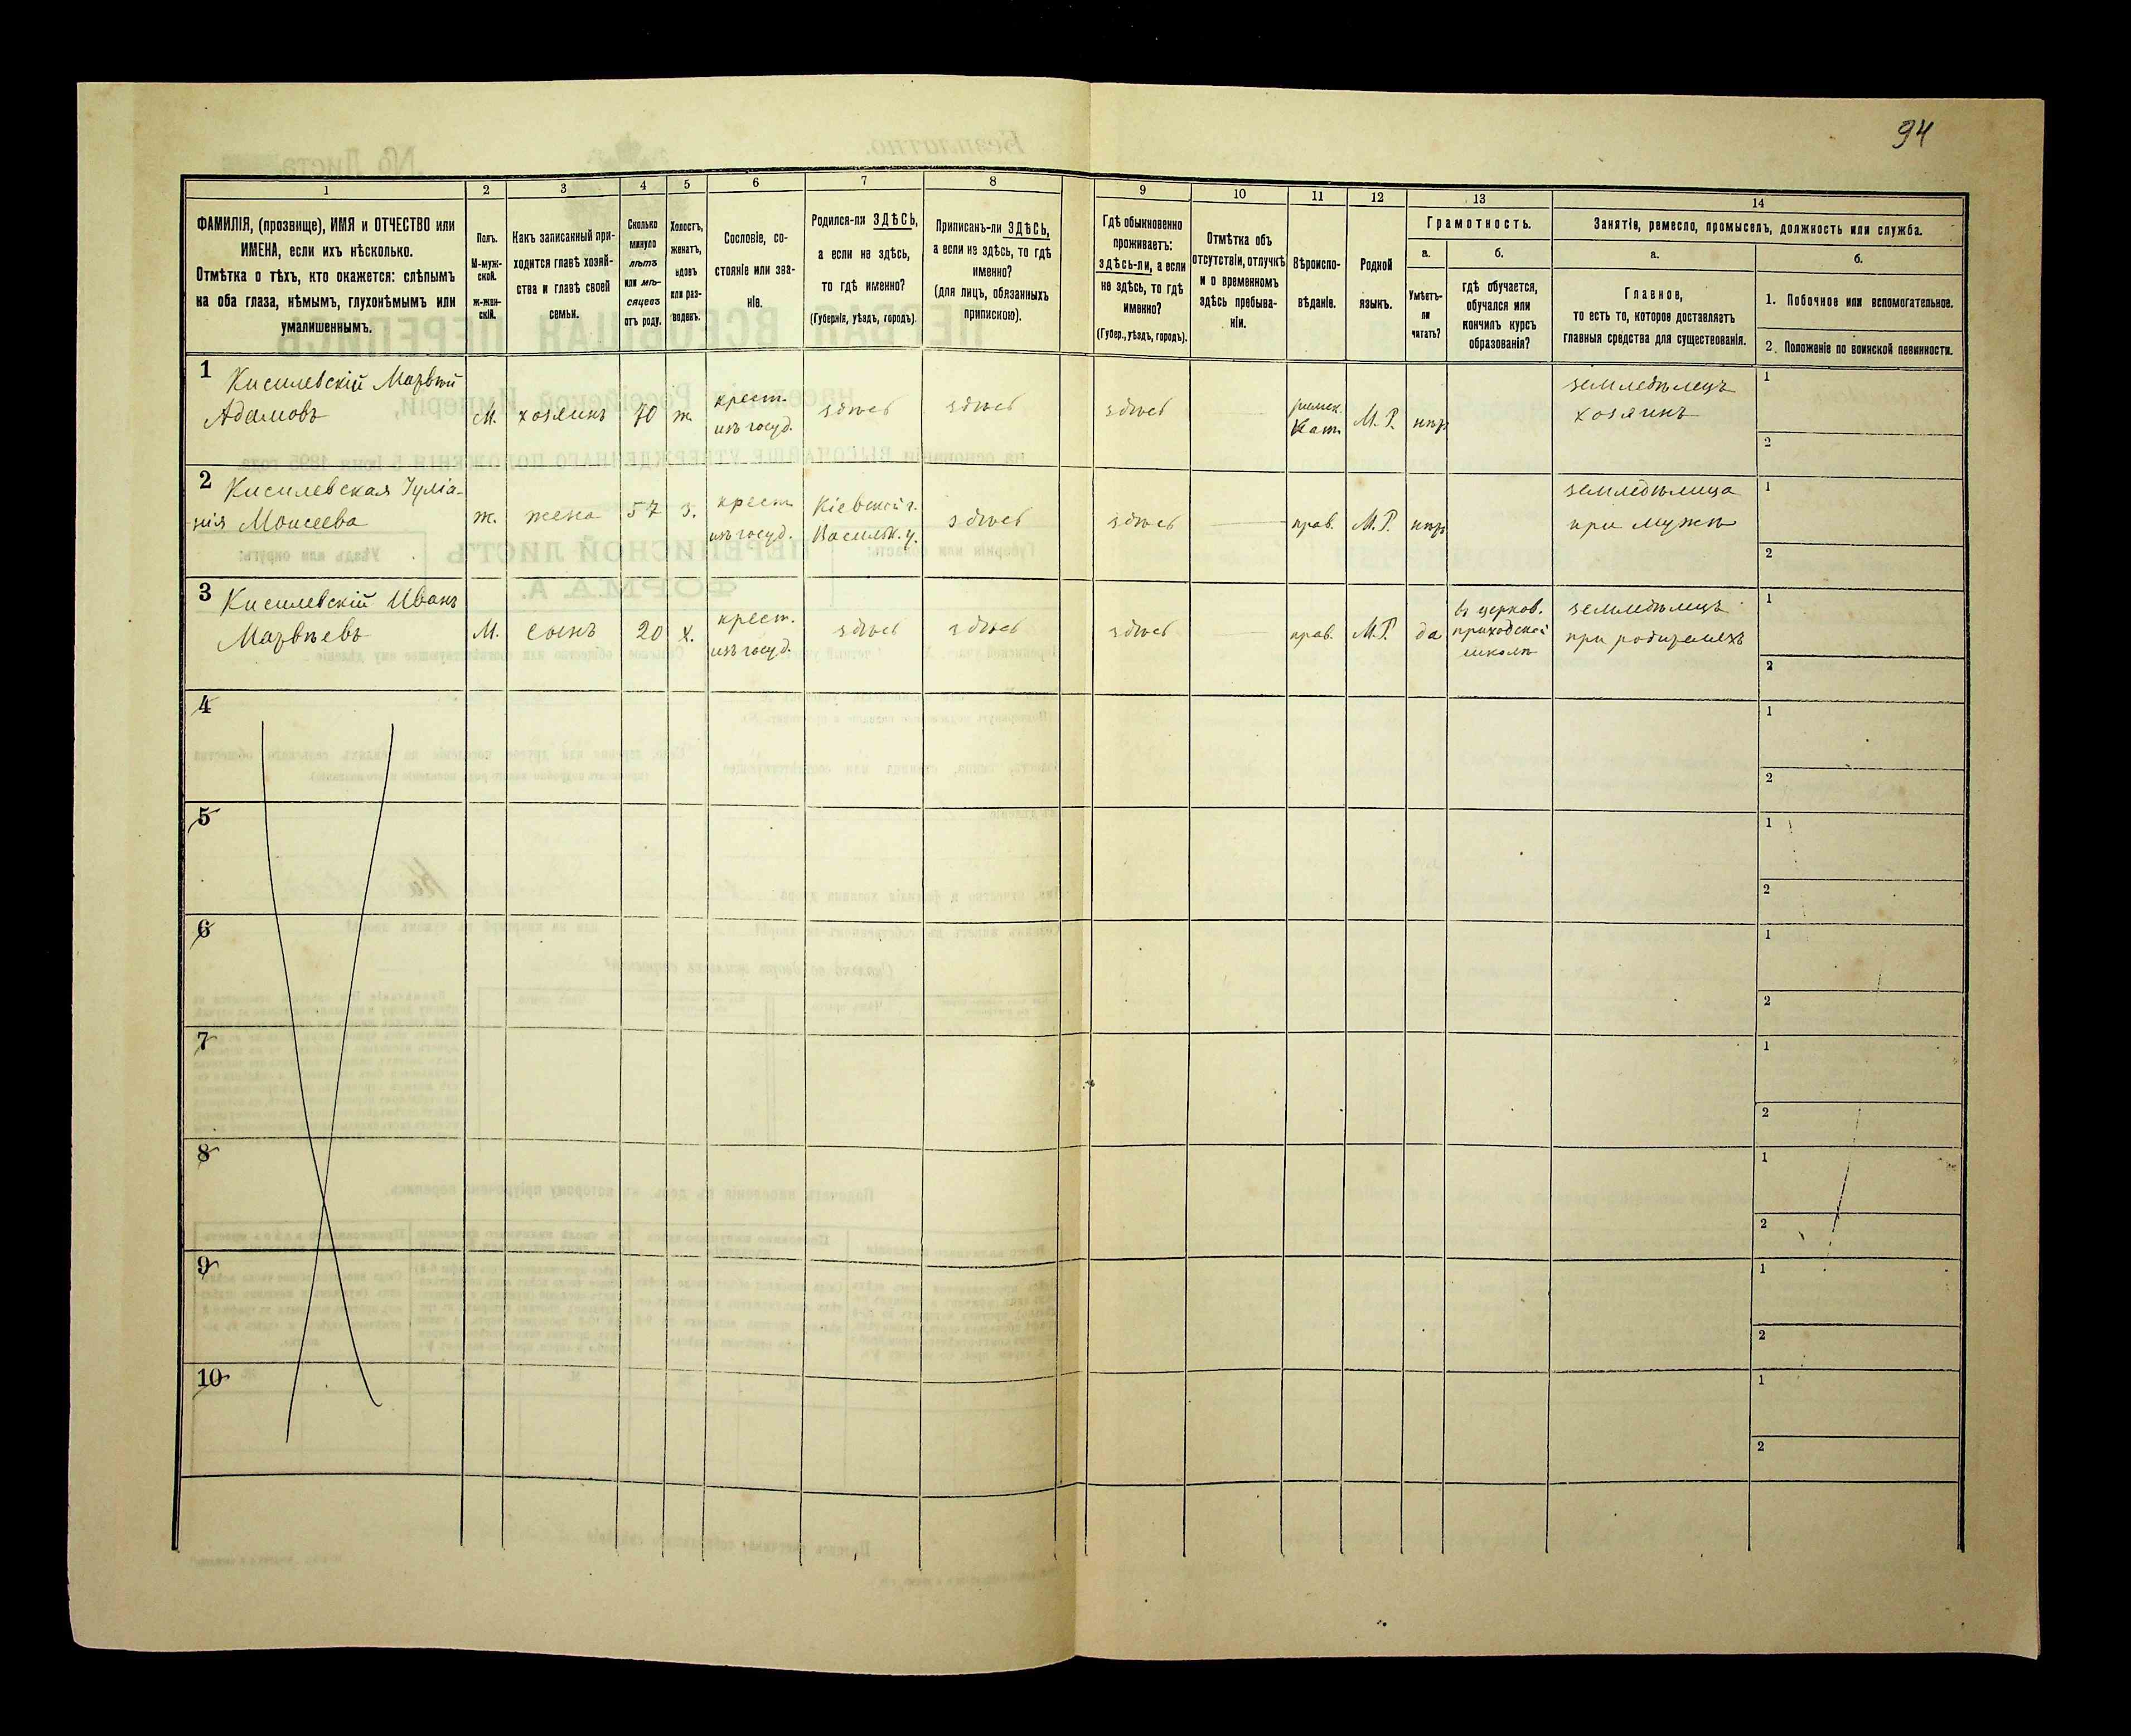 94
1 2 3 4 5 6 7 8 9 10 11 12 13 14
ФАМИЛІЯ, (прозвище), ИМЯ и ОТЧЕСТВО или
ИМЕНА, если ихъ нѣсколько.
Отмѣтка о тѣхъ, кто окажется: слѣпымъ
на оба глаза, нѣмымъ, глухонѣмымъ или
умалишеннымъ.
Полъ.
М-муж-
ской.
ж-жен-
скій.
Какъ записанный при-
ходится главѣ хозяй-
ства и главѣ своей
семьи.
Сколько
минуло
лѣтъ
или мѣ-
сяцевъ
отъ роду.
Холостъ,
женатъ,
вдовъ
или раз-
веденъ.
Сословіе, со-
стояніе или зва-
ніе.
Родился-ли ЗДѢСЬ,
а если не здѣсь,
то гдѣ именно?
(Губернія, уѣздъ, городъ).
Приписанъ-ли ЗДѢСЬ,
а если не здѣсь, то гдѣ
именно?
(для лицъ, обязанныхъ
припискою).
Гдѣ обыкновенно
проживаетъ:
здѣсь-ли, а если
не здѣсь, то гдѣ
именно?
(Губер., уѣздъ, городъ).
Отмѣтка объ
отсутствіи, отлучкѣ
и о временномъ
здѣсь пребыва-
ніи.
Вѣроиспо-
вѣданіе.
Родной
языкъ.
Грамотность.
а.
Умѣетъ-
ли
читать?
б.
гдѣ обучается,
обучался или
кончилъ курсъ
образованія?
Занятіе, ремесло, промыселъ, должность или служба.
а.
Главное,
то есть то, которое доставляетъ
главныя средства для существованія.
б.
1. Побочное или вспомогательное.
2. Положеніе по воинской повинности.
1
Кисилевскій Матвѣй
Адамовъ
М.
хозяинъ
70
ж.
крест.
изъ госуд.
здѣсь
здѣсь
здѣсь
римск.
Кат.
М. Р.
нѣт
земледѣлецъ
хозяинъ
1
2
2
Кисилевская Іуліа-
нія Моисеева
ж.
жена
57
з.
крест.
изъ госуд.
Кіевской г.
Васильк. у.
здѣсь
здѣсь
прав.
М. Р.
нѣт
земледѣлица
при мужѣ
1
2
3
Кисилевскій Иванъ
Матвѣевъ
М.
сынъ
20
х.
крест.
изъ госуд.
здѣсь
здѣсь
здѣсь
прав.
М. Р.
да
въ церков.
приходской
школѣ
земледѣлецъ
при родителяхъ
1
2
4
1
2
5
1
2
6
1
2
7
1
2
8
1
2
9
1
2
10
1
2